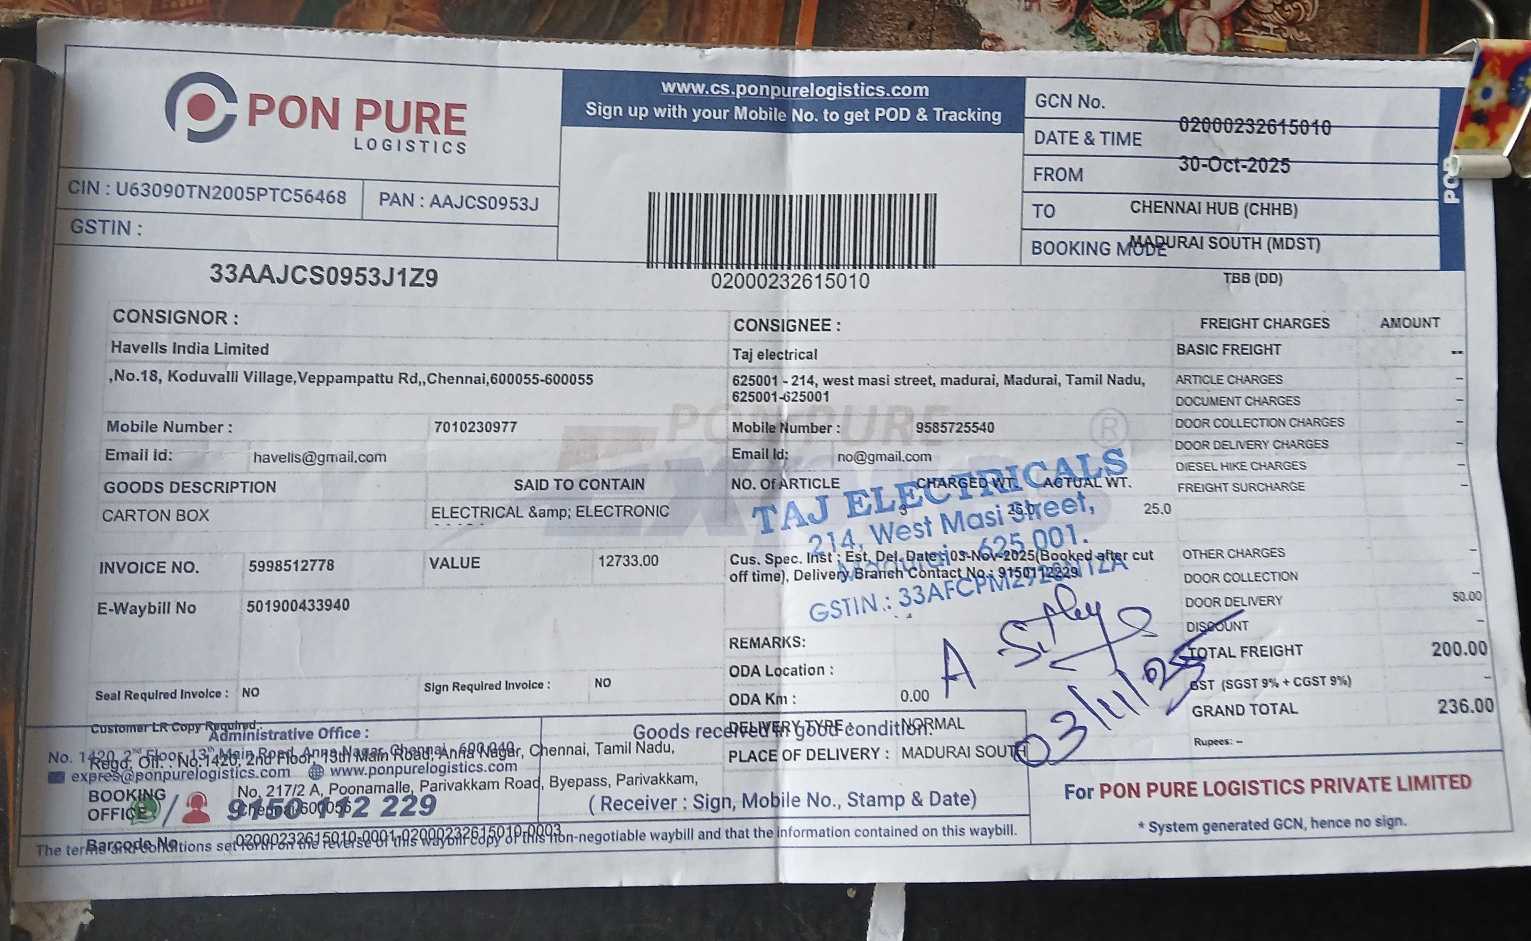 PON PURE
LOGISTICS
www.cs.ponpurelogistics.com
Sign up with your Mobile No. to get POD & Tracking
CIN : U63090TN2005PTC56468
PAN : AAJCS0953J
GSTIN :
33AAJCS0953J1Z9
02000232615010
GCN No.
02000232615010
DATE & TIME
30-Oct-2025
FROM
CHENNAI HUB (CHHB)
TO
MADURAI SOUTH (MDST)
BOOKING MODE
TBB (DD)
CONSIGNOR :
Havells India Limited
,No.18, Koduvalli Village,Veppampattu Rd,,Chennai,600055-600055
Mobile Number : 7010230977
Email Id: havells@gmail.com
GOODS DESCRIPTION SAID TO CONTAIN
CARTON BOX ELECTRICAL &amp; ELECTRONIC
INVOICE NO. 5998512778 VALUE 12733.00
E-Waybill No 501900433940
Seal Required Invoice : NO Sign Required Invoice : NO
Customer LR Copy Required :
CONSIGNEE :
Taj electrical
625001 - 214, west masi street, madurai, Madurai, Tamil Nadu,
625001-625001
Mobile Number : 9585725540
Email Id: no@gmail.com
PON PURE
NO. Of ARTICLE CHARGED WT. ACTUAL WT.
3 25.0 25.0
Cus. Spec. Inst : Est. Del. Date : 03-Nov-2025(Booked after cut
off time), Delivery Branch Contact No.: 9150112229
TAJ ELECTRICALS
214, West Masi Street,
Madurai - 625 001.
REMARKS:
ODA Location :
ODA Km : 0.00
DELIVERY TYPE : NORMAL
PLACE OF DELIVERY : MADURAI SOUTH
A
03/11/25
FREIGHT CHARGES AMOUNT
BASIC FREIGHT --
ARTICLE CHARGES -
DOCUMENT CHARGES -
DOOR COLLECTION CHARGES -
DOOR DELIVERY CHARGES -
DIESEL HIKE CHARGES -
FREIGHT SURCHARGE -
OTHER CHARGES -
DOOR COLLECTION -
DOOR DELIVERY 50.00
DISCOUNT -
TOTAL FREIGHT 200.00
GST (SGST 9% + CGST 9%) -
GRAND TOTAL 236.00
Rupees: –
Administrative Office :
No. 1420, 2nd Floor, 13th Main Road, Anna Nagar, Chennai - 600 040
Regd. Off. : No.1420, 2nd Floor, 13th Main Road, Anna Nagar, Chennai, Tamil Nadu,
expres@ponpurelogistics.com www.ponpurelogistics.com
BOOKING OFFICE
No, 217/2 A, Poonamalle, Parivakkam Road, Byepass, Parivakkam,
Chennai 600056
9150 112 229
Goods received in good condition.
( Receiver : Sign, Mobile No., Stamp & Date)
Barcode No 02000232615010-0001-02000232615010-0003
The terms and conditions set forth on the reverse of this waybill copy of this non-negotiable waybill and that the information contained on this waybill.
For PON PURE LOGISTICS PRIVATE LIMITED
* System generated GCN, hence no sign.